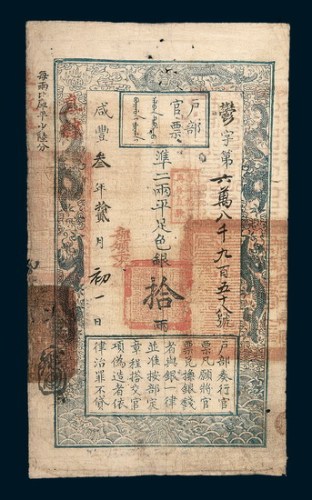 戶部
官票
字第六萬八千九百五十八號
準二兩平足色銀拾兩
咸豐叁年拾貳月初一日
戶部奏行官
票凡願將官
票兌換銀錢
者與銀一律
並准按部定
章程搭交官
項偽造者依
律治罪不貸
每兩比庫平小陸分